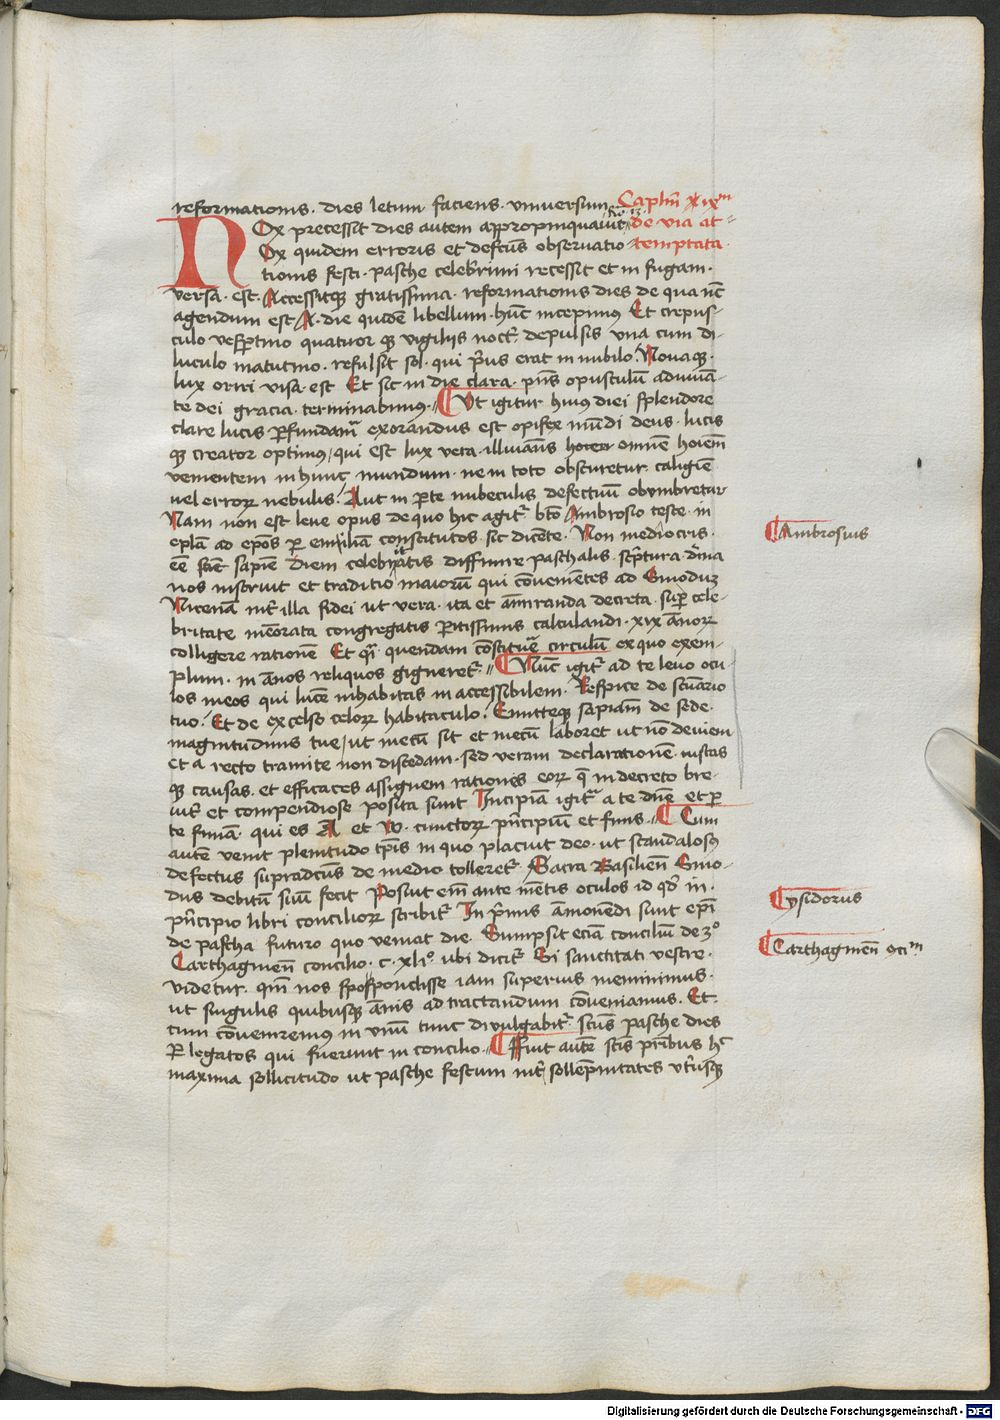 reformationis. dies letum faciens. universum Caplm̄ xixm
NOx precessit dies autem appropinquavit Ro. 13. de via at=
Ox quidem erroris et defctūs observatio temptata.
tionis festi. pasche celebrimi recessit et in fugam.
versa. est. Accessitqꝫ gratissima. reformationis dies de qua nūc
agendum est A. die quidē libellum. hūc incepimus Et crepus-
culo vesptino quatuor qꝫ vigiliis noct depulsis una cum di
luculo matutino. refulsit sol. qui pīus erat in nubilo. Novaqꝫ.
lux oriri visa. est Et sic in die clara. pn̄s opusculū adiuvā-
te dei gracia. terminabimus. Ut igitur huius diei splendore
clare lucis ꝑfundam̄ exorandus est opifex mūdi deus. lucis
qꝫ creator optimus, qui est lux vera. illuīans omnē hoīem
venientem in hunc mundum. ne in toto obscuretur. caligīe
vel erroꝝ nebulis. Aut in ꝑte nubeculis defectuū obūmbretur
Nam non est leve opus de quo hic agit̄ bt̄o Ambrosio teste. in
epl̄a ad ep̄os ꝑ emiliā constitutos. sic dicēte. Non mediocris.
eē sapīe diem celebitatis diffinire paschalis. scptura. dīna
nos instruit et traditio maiorū qui cōvenientes ad Sinoduꝫ
Nicenā int̄ illa fidei ut vera. ita et amiranda decreta. suꝑ cele-
britate mēorata congregatis ꝑitissimis calculandi. xix annoꝝ
colligere rationē Et q̄i. quendam cōstituē circulū ex quo exem-
plum. in annos reliquos gigneret̄. Nūc igit̄ ad te levo ocu-
los meos qui lucē inhabitas in accessibilem. Respice de sc̄uario
tuo. Et de excelso celoꝝ habitaculo. Emitteqꝫ sapiam̄ de sede.
magnitudinis tue, ut mecū sit et mecū laboret ut nō deviem
et a recto tramite non discedam. sed veram declarationē iustas
qꝫ causas. et efficaces assignem rationes eoꝝ q̄ in decreto bre-
vit̄ et compendiose posita sunt Incipiā igit̄ a te dn̄e et ꝑ
te finiā. qui es A et ω. cunctoꝝ pn̄cipiū et finis. Cum
autē venit plenitudo tp̄is in quo placuit deo. ut scandalosus
defectus supradctūs de medio tolleret̄. Sacra Basilien̄ Sino-
dus debitū suū fecit Posuit em̄ ante mētis oculos id qd̄ in.
pn̄cipio libri concilioꝝ scribit̄ In pīmis āmonendi sunt epī
de pascha futuro quo veniat die. Sumpsit eciā concilium de 3o
Carthaginen̄ concilio. c. xlio. ubi dicit̄ Si sanctitati vestre.
videtur. qm̄ nos spospondisse iam superius meminimus.
ut singulis quibusqꝫ annis ad tractandum cōveniamus. Et.
cum cōvenīremus in unū tunc divulgabit̄. sctūs pasche dies
ꝑ legatos qui fuerunt in concilio. Fuit autē sctis pīribus hec
maxima sollicitudo ut pasche festum int̄ sollempnitates utīusqꝫ
Ambrosius
Ysidorus
Carthaginen̄ 9cim
Digitalisierung gefördert durch die Deutsche Forschungsgemeinschaft - DFG